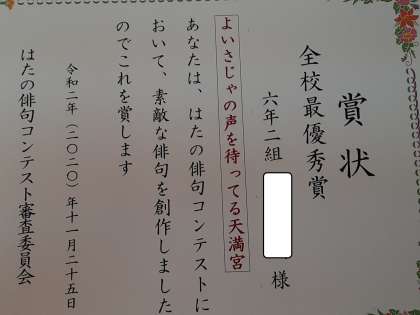 賞状
全校最優秀賞
六年二組 様
よいさじゃの声を待ってる天満宮
あなたは、はたの俳句コンテストに
おいて、素敵な俳句を創作しました
のでこれを賞します
令和二年（二〇二〇）年十一月二十五日
はたの俳句コンテスト審査委員会